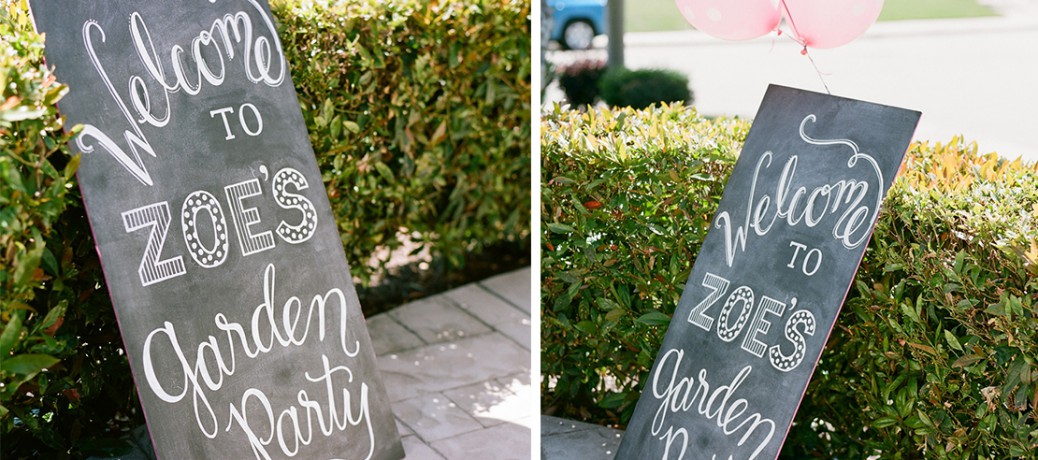 Welcome
TO
ZOE'S
Garden
Party
Welcome
TO
ZOE'S
Garden